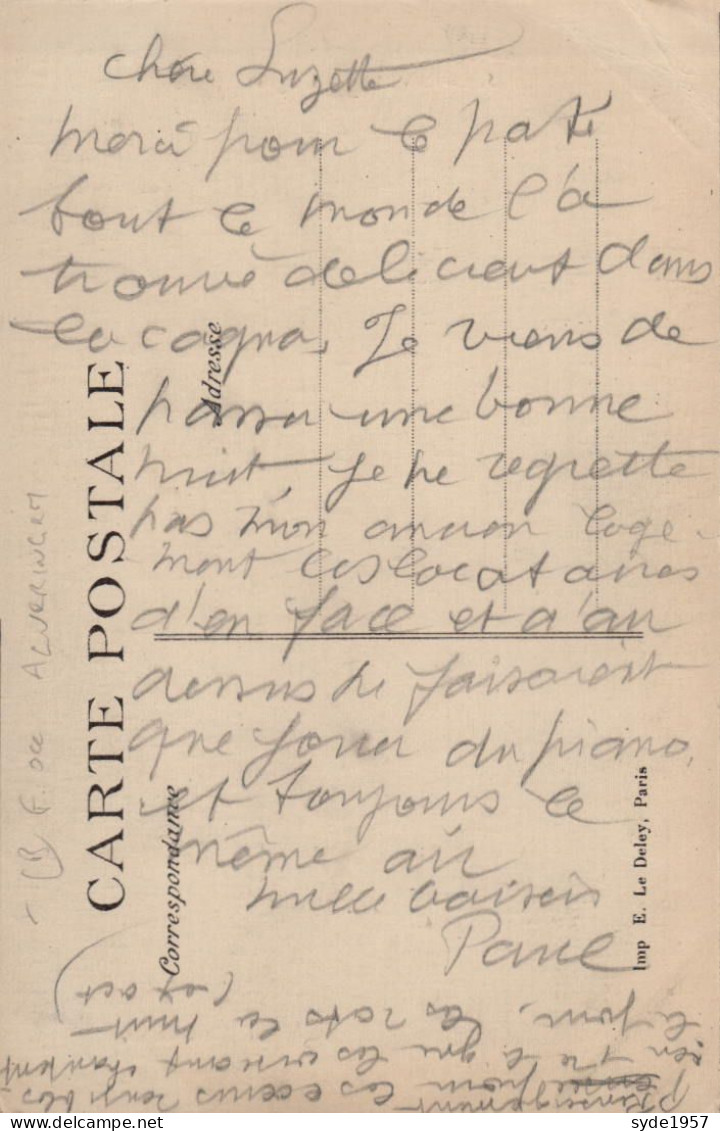 chère Suzette
merci pour le paté
tout le monde l'a
trouvé délicieux dans
la cagna. Je viens de
passer une bonne
nuit, je ne regrette
pas mon ancien loge-
ment les locataires
d'en face et d'au
dessus ne faisaient
que jouer du piano.
et toujours le
même air
mille baisers
Paul
CARTE POSTALE
Adresse
Correspondance
Imp E. Le Deley, Paris
les rats la nuit
delcampe.net
syde1957